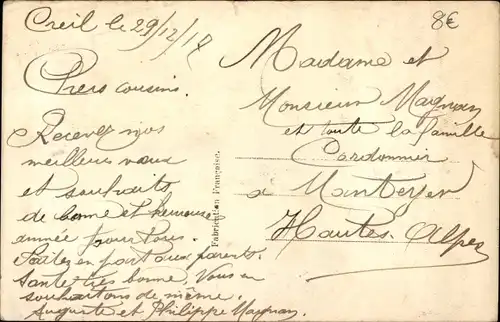 Creil le 29/12/17
8€
Chers cousins.
Recevez nos
meilleurs vœux
et souhaits
de bonne et heureuse
année pour tous.
Faites en part aux parents.
Sante tres bonne. Vous en
souhaitons de même.
Auguste et Philippe Magnan
Fabrication Française.
Madame et
Monsieur Magnan
et toute la famille
Cordonnier
a Manteyer
Hautes-Alpes